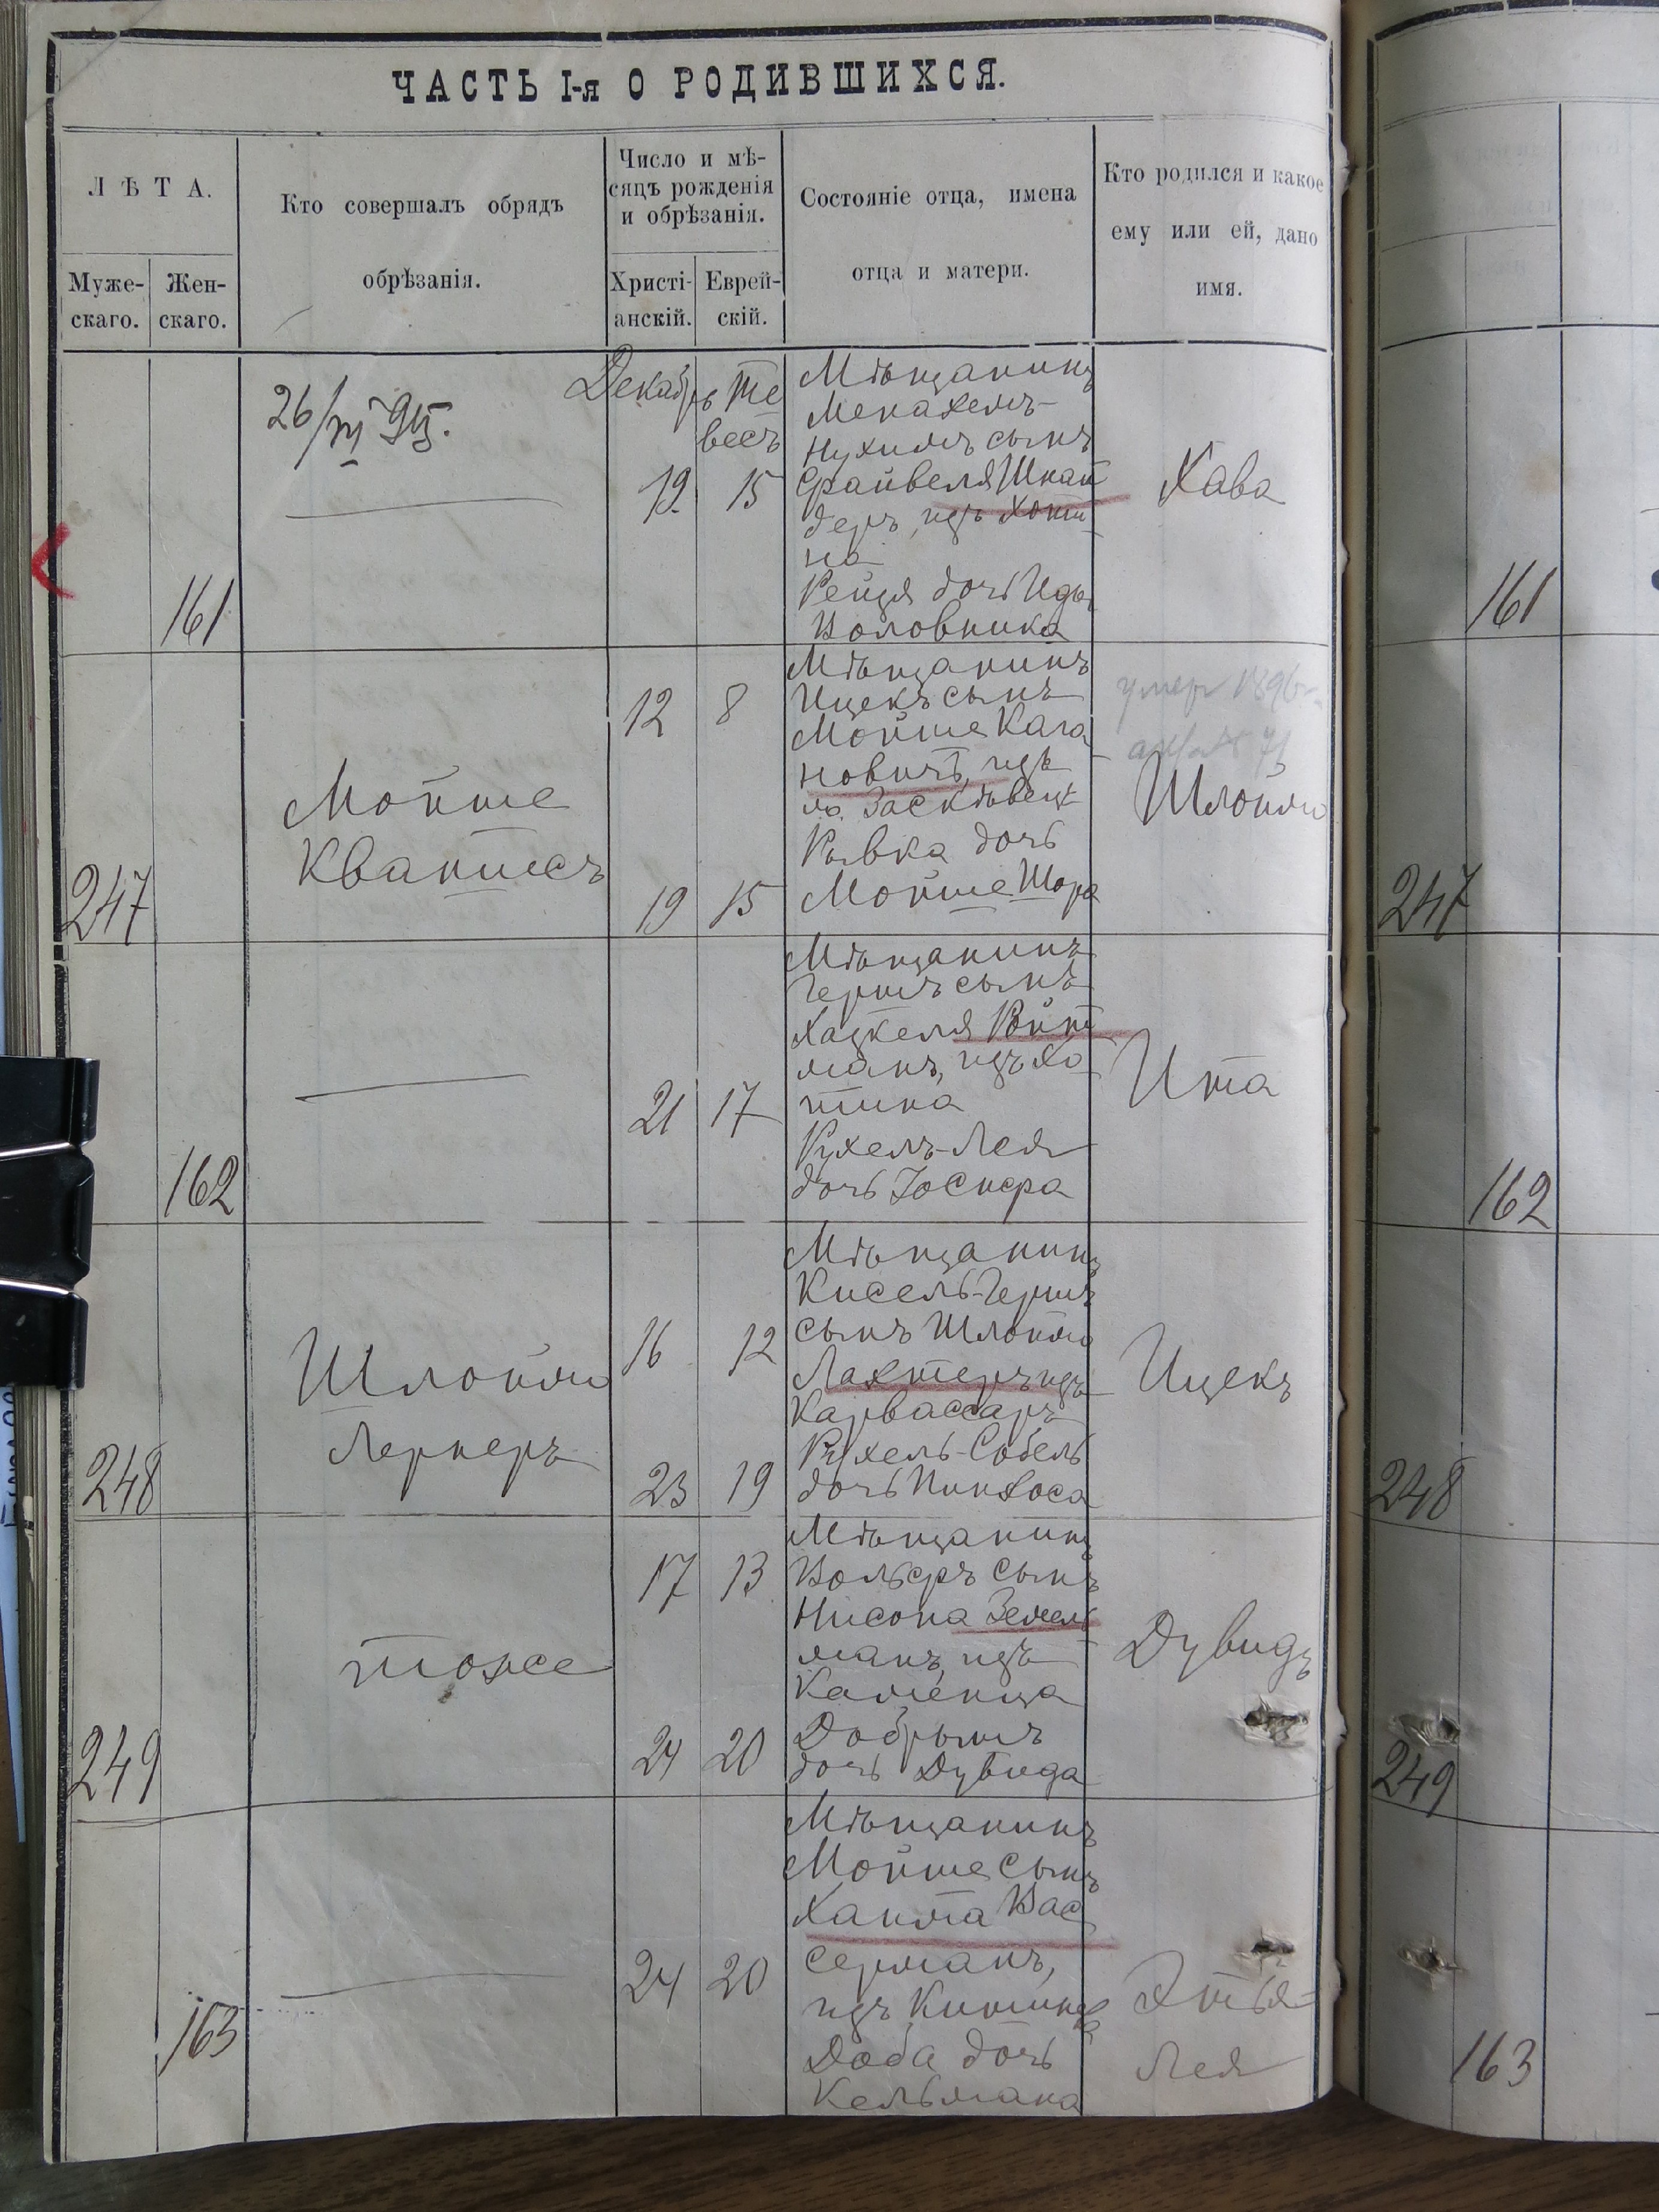 ЧАСТЬ I-я О РОДИВШИХСЯ.
ЛѢТА.
Муже-
скаго.
Жен-
скаго.
Кто совершалъ обрядъ
обрѣзанія.
Число и мѣ-
сяцъ рожденія
и обрѣзанія.
Христі-
анскій.
Еврей-
скій.
Состояніе отца, имена
отца и матери.
Кто родился и какое
ему или ей, дано
имя.
161
26/VI
Декабрь
Те
весъ
19.
15
Мѣщанинъ
Менахемъ-
Нухимъ сынъ
Фрайвеля Шнай
деръ, изъ Хоти-
на
Рейзя дочь
Воловника
Хава
161
247
Мойше
Квантесъ
12
8
19
15
Мѣщанинъ
Ицекъ сынъ
Мойше Кага
новичъ, изъ
м. Заскѣвецъ
Рывка дочь
Мойше Шора
умеръ 1896 г.
71
Шлойма
247
162
21
17
Мѣщанинъ
Гершъ сынъ
Хацкеля Ройт
манъ, изъ Хо
тина
Рухель-Лея
дочь Іосифа
Ита
162
248
Шлойма
Лернеръ
16
12
23
19
Мѣщанинъ
Кисель-Гершъ
сынъ Шлойма
Лахтеръ изъ
Карвассаръ
Рухель-Собель
дочь Пинхоса
Ицекъ
248
249
тоже
17
13
24
20
Мѣщанинъ
Вольфъ сынъ
Нисона Земель
манъ, изъ
Каменца
Добрышъ
дочь Дувида
Дувидъ
249
163
24
20
Мѣщанинъ
Мойше сынъ
Хаима Вас
серманъ,
изъ
Доба дочь
Кельмана
Этья-
Лея
163